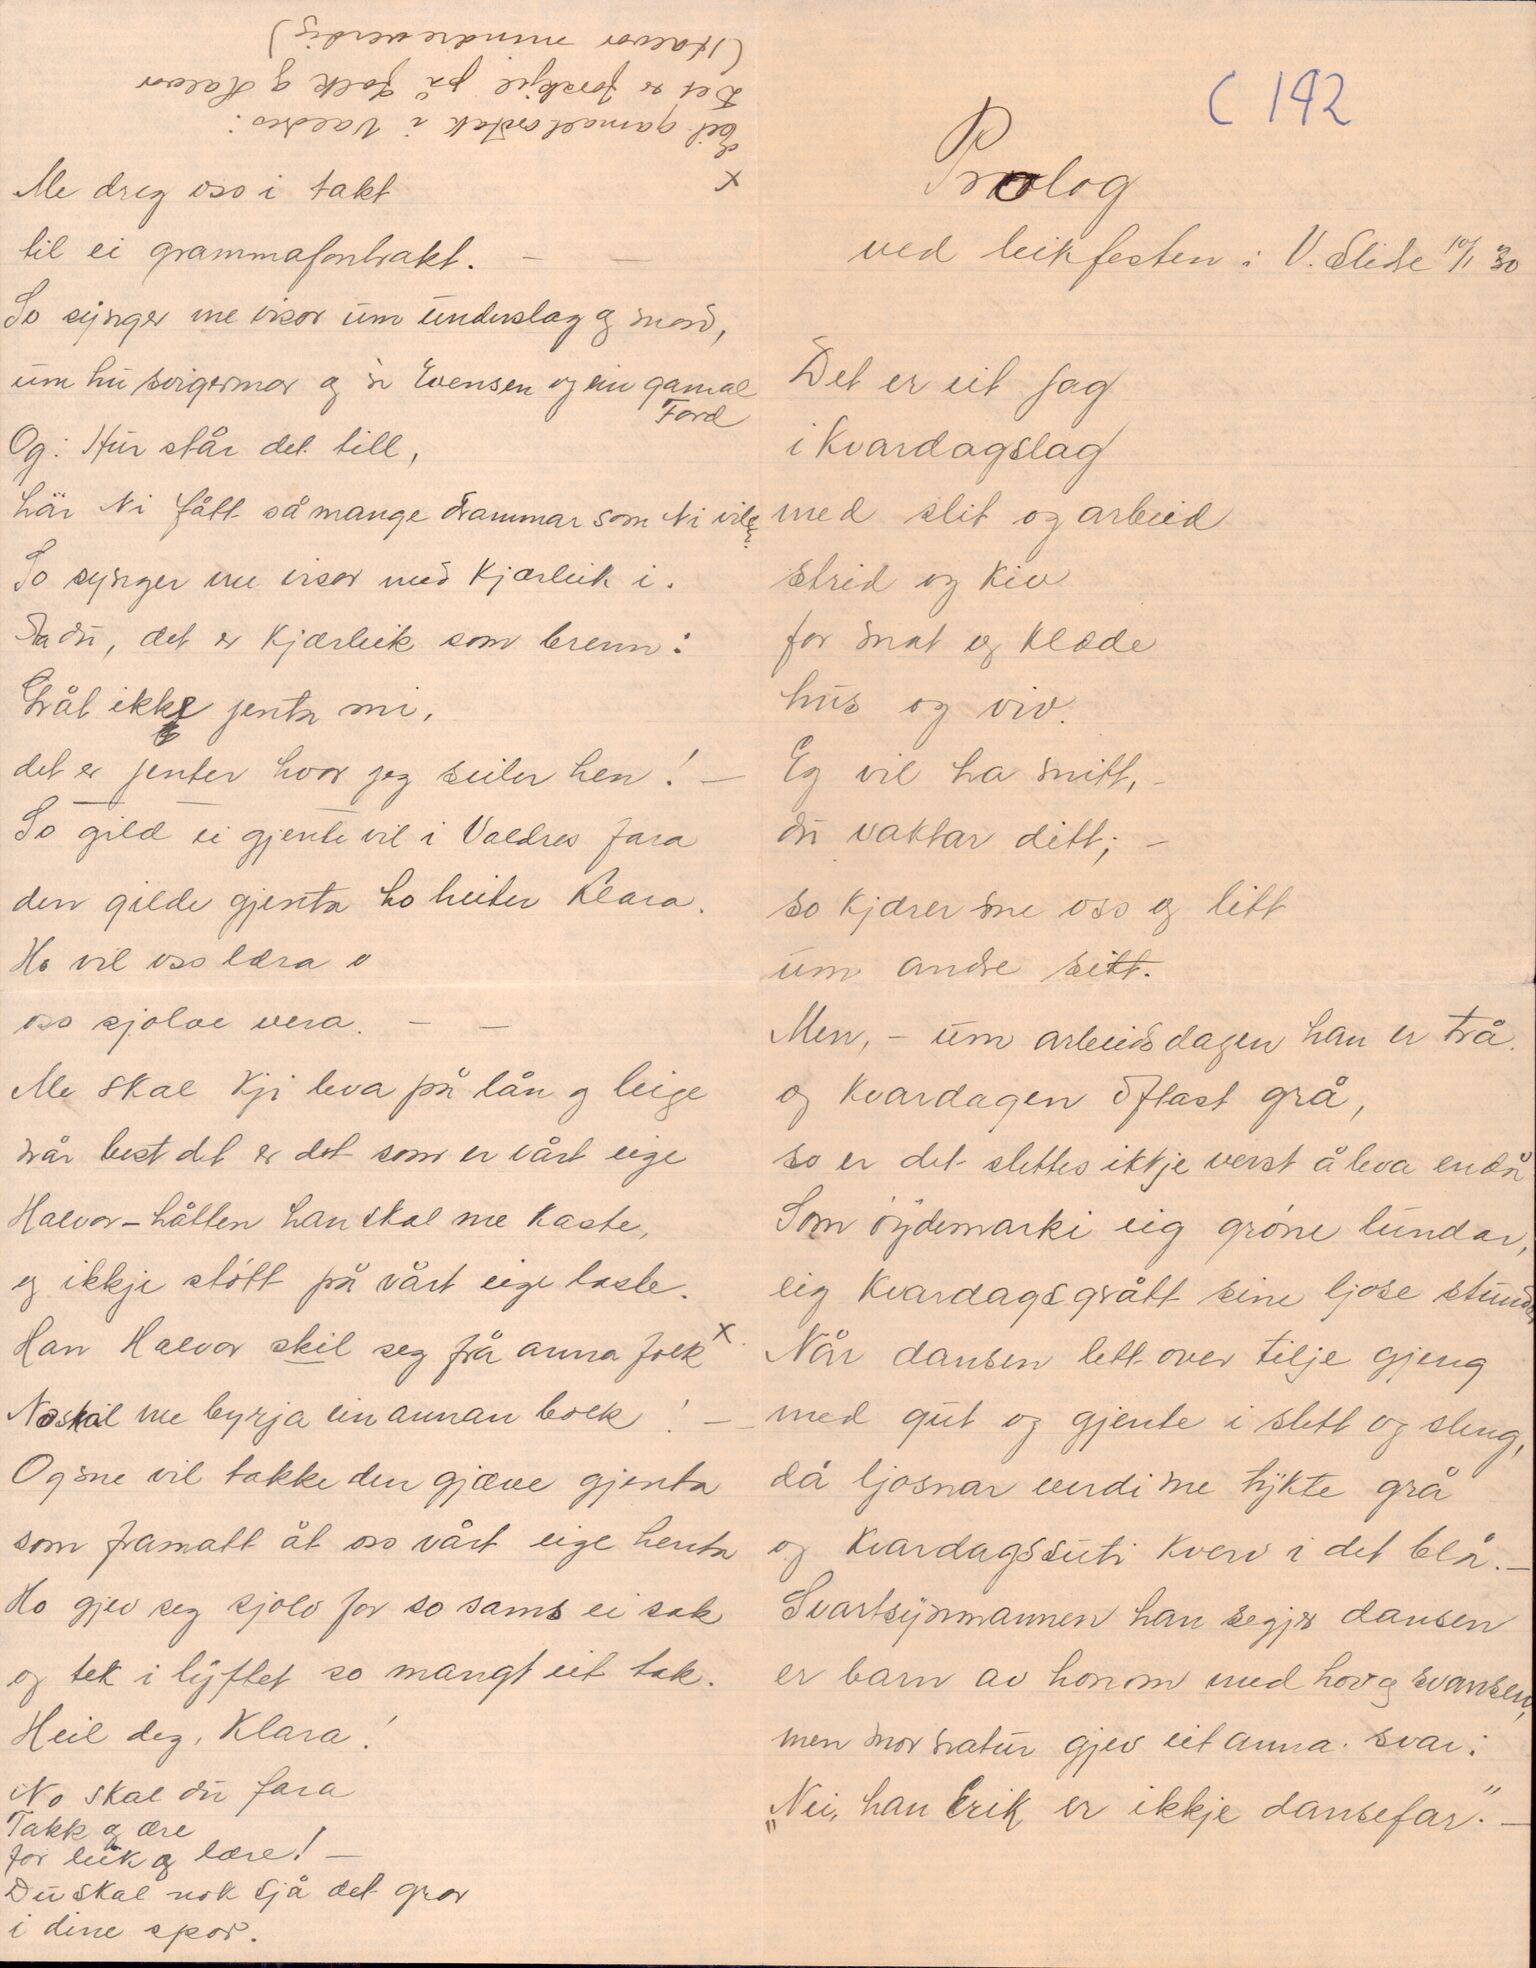 C 192
Prolog
ved leikfesten i V. Slidre 10/1 30
Det er eit jag
i kvardagslag
med slit og arbeid
strid og kiv
for mat og klæde
hus og viv.
Eg vil ha mitt, –
du vaktar ditt; –
so kjærer me oss og litt
um andre sitt.
Men, – um arbeidsdagen han er trå
og kvardagen oftast grå,
so er det slettes ikkje verst å leva endå
Som øydemarki eig grøne lundar,
eig kvardagsgrått sine ljose stundar
Når dansen lett over tilje gjeng
med gut og gjente i slett og sleng,
då ljosnar verdi me tykte grå
og kvardagssuti kverv i det blå. –
Svartsynmannen han segjer dansen
er barn av honom med hov og svansen,
men mor natur gjev eit anna svar:
„Nei, han Erik er ikkje dansefar". –
Me dreg oss i takt
til ei grammafontrakt. – –
So synger me visor um underslag og mord,
um hu svigermor og n Evensen og ein gamal
Ford
Og: Hur står det till,
här Ni fått så mange drammar som Ni vill?
So synger me visor med kjærleik i.
Ja du, det er kjærleik som brenn:
Gråt ikke jenta mi,
det er jenter hvor jeg seiler hen! –
So gild ei gjente vil i Valdres fara
den gilde gjenta ho heiter Klara.
Ho vil oss læra o
oss sjølve vera. – –
Me skal kji leva på lån og leige
når best det er det som er vårt eige
Halvor-håtten han skal me kaste,
og ikkje støtt på vårt eige laste.
Han Halvor skil seg frå anna folk x
No skal me byrja ein annan bolk! –
Og me vil takke den gjæve gjenta
som framatt åt oss vårt eige henta
Ho gjev seg sjølv for so sams ei sak
og tek i lyftet so mangt eit tak.
Heil deg, Klara!
No skal du fara
Takk og ære
for leik og lære! –
Du skal nok sjå det gror
i dine spor.
x
Eit gamalt ordtak i Valdres:
Det er forskjel på folk og Halvor
(Halvor mindreverdig)